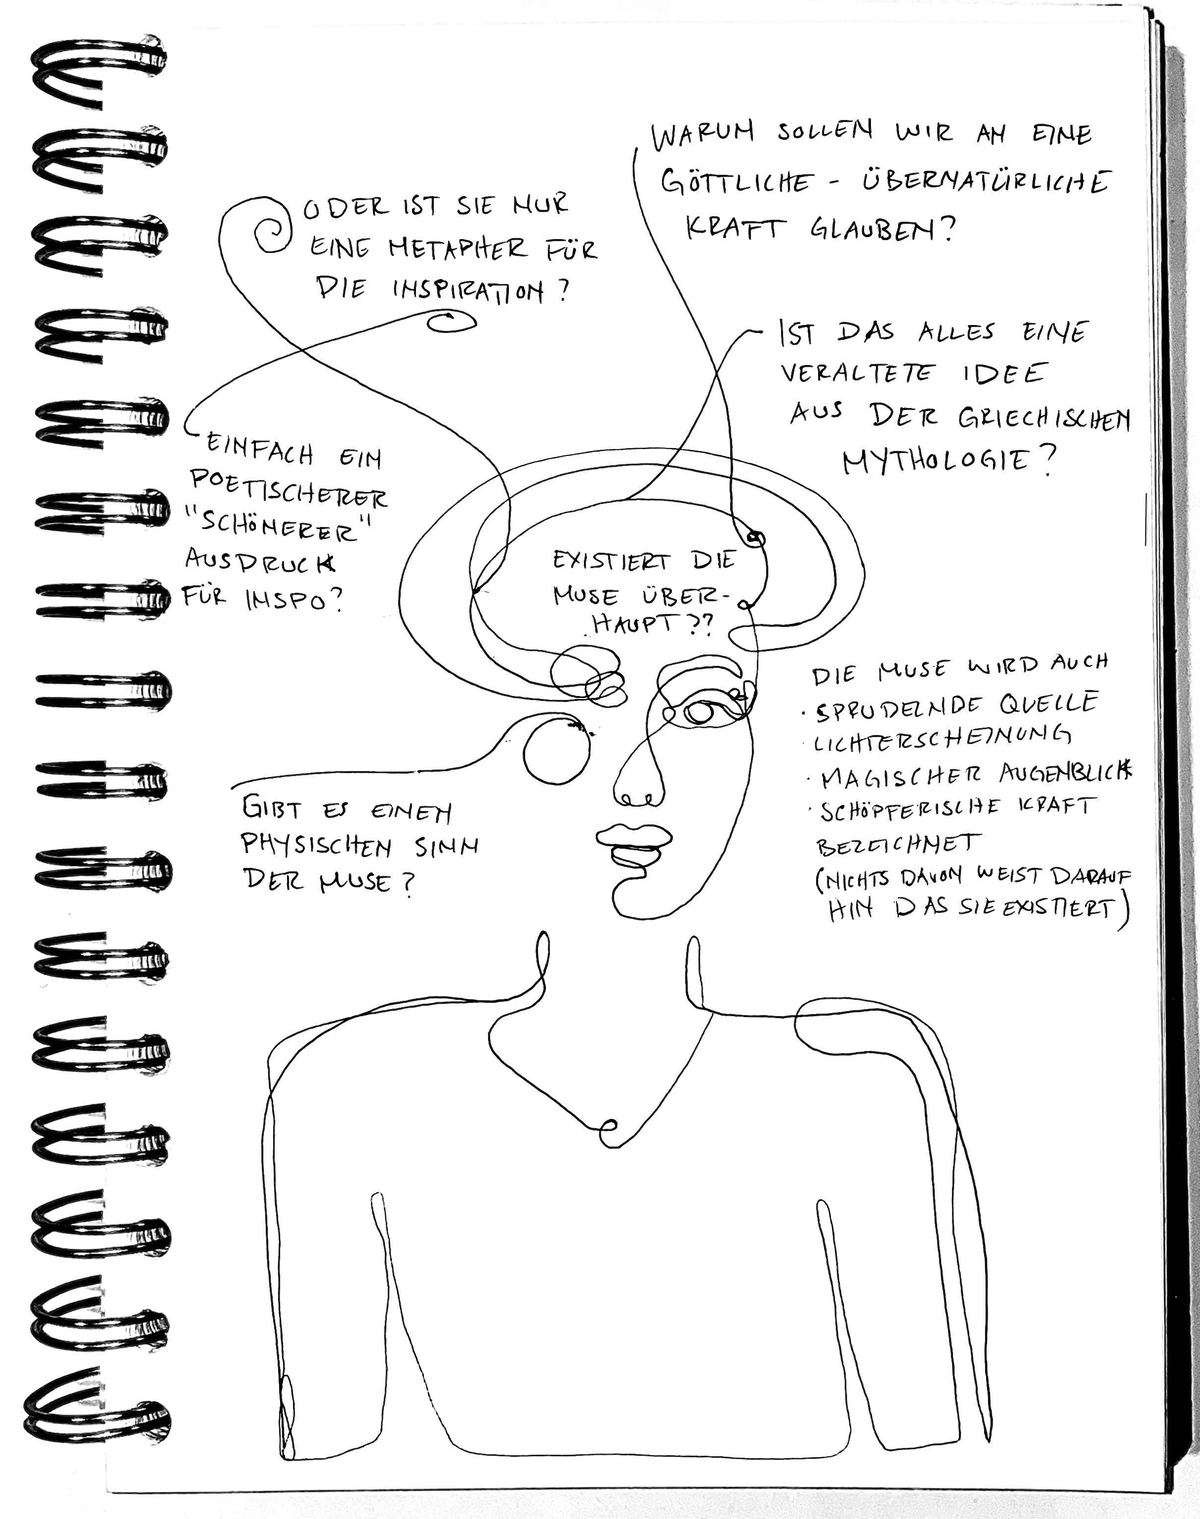 WARUM SOLLEN WIR AN EINE
GÖTTLICHE - ÜBERNATÜRLICHE
KRAFT GLAUBEN?
ODER IST SIE NUR
EINE METAPHER FÜR
DIE INSPIRATION?
IST DAS ALLES EINE
VERALTETE IDEE
AUS DER GRIECHISCHEN
MYTHOLOGIE?
EINFACH EIN
POETISCHERER
"SCHÖNERER"
AUSDRUCK
FÜR INSPO?
EXISTIERT DIE
MUSE ÜBER-
HAUPT??
DIE MUSE WIRD AUCH
· SPRUDELNDE QUELLE
· LICHTERSCHEINUNG
· MAGISCHER AUGENBLICK
· SCHÖPFERISCHE KRAFT
BEZEICHNET
(NICHTS DAVON WEIST DARAUF
HIN DAS SIE EXISTIERT)
GIBT ES EINEN
PHYSISCHEN SINN
DER MUSE?